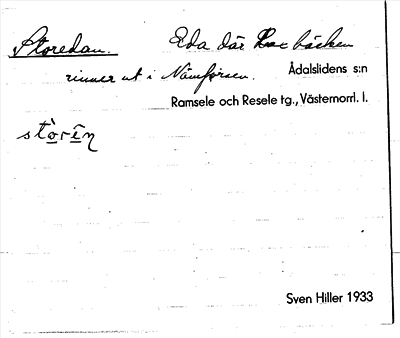 Storedan. Eda där bäcken
rinner ut i Nämforsen. Ådalslidens s:n
Ramsele och Resele tg., Västernorrl. l.
Sven Hiller 1933